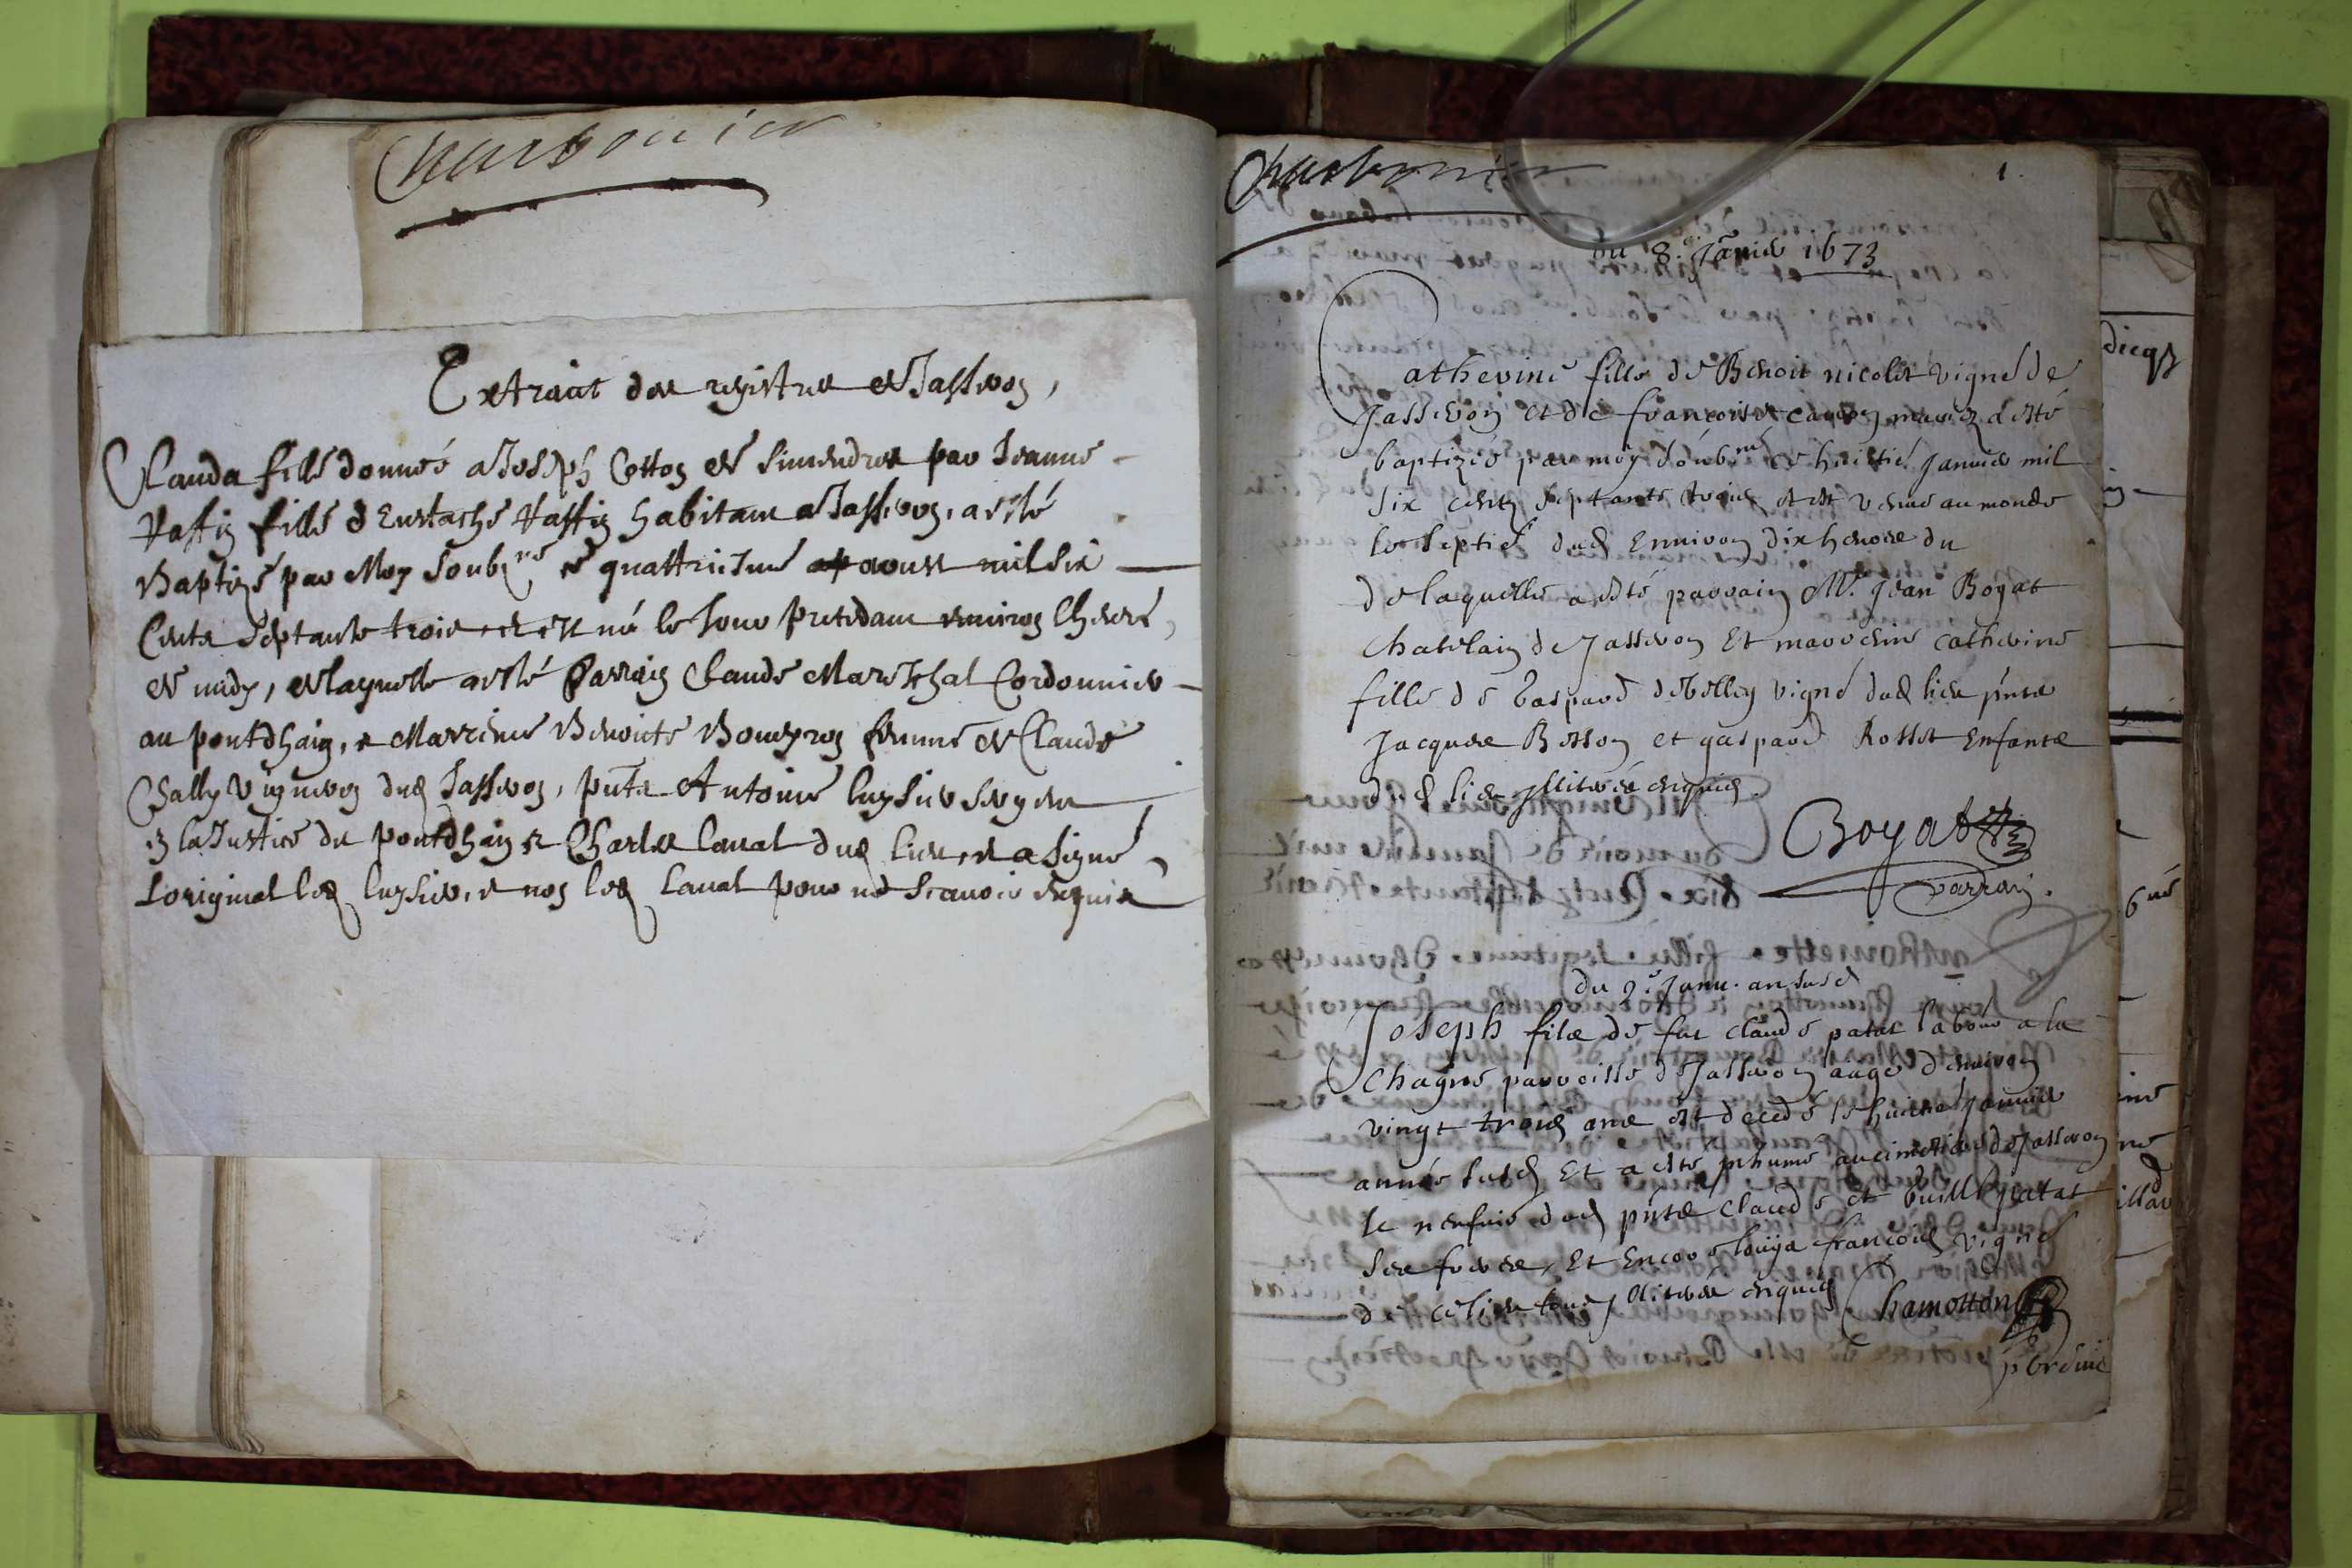 Charbonier
Extraict des registres de Jasseron,
Clauda fille donnée a Joseph Cotton de Simendres par Jeanne
fille d Eustache habitant a Jasseron, a esté
Baptizé par Moy Soubz.né ce quattriesme aoust mil six
Cents Septante trois et est né le Jour precedant environ Lheure
de midy, de laquelle a esté Parrain Claude Mareschal Cordonnier
au pontdhain, e Marreine Benoicte femme de Claude
Chally Vigneron dud Jasseron, pnts Antoine Luysier sergent
en la Justice du pontdhain e Charles Laval dud lieu, et a signé
Loriginal led Luysier, e non led Laval pour ne scavoir enquis
Charbonier
1.
du 8.e Janvier 1673
Catherine fille de Benoit nicolet vigné de
Jasseron et de francoise mariez a esté
baptizée par moy soubné ce huictie Janvier mil
six centz septante trois et est venue au monde
le septie dud Environ dix heures du
de laquelle a esté parrain Mr. Jean Boyat
chatelain de Jasseron Et marreine catherine
fille de Gaspard debelley vigné dud lieu pnts
Jacques Besson et gaspard Rosset Enfants
dud lieu illiterés enquis.
Boyat
parrain.
du 9.e Janv. an susd
Joseph fils de fut claude patat labour a la
chagne parroisse de Jasseron aagé d'environ
vingt trois ans est decedé le huictie Janvier
année susd Et a esté inhumé au cimetiere de Jasseron
le neufvie dud pnts Claude et Guill patat
ses freres, Et Encor francois vigné
de ce lieu tous illiterés enquis Chamotton
pbre
dicqz
6 né
ine
ne
illar